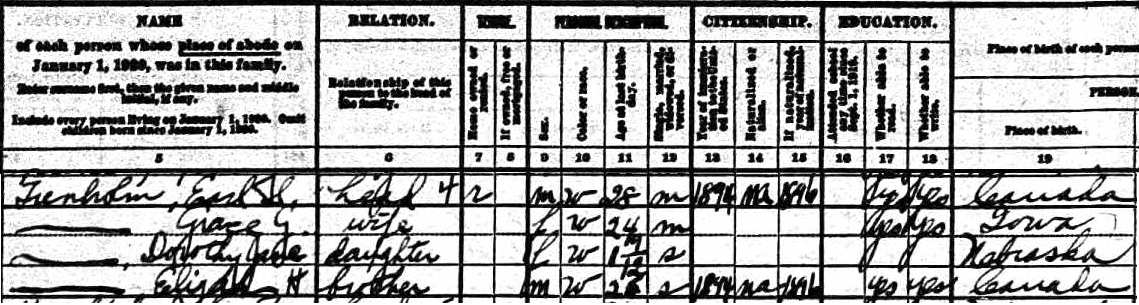 NAME RELATION. TENURE. PERSONAL DESCRIPTION. CITIZENSHIP. EDUCATION.
of each person whose place of abode on
January 1, 1920, was in this family.
Enter surname first, then the given name and middle
initial, if any.
Include every person living on January 1, 1920. Omit
children born since January 1, 1920.
Relationship of this
person to the head of
the family.
Home owned or
rented.
If owned, free or
mortgaged.
Sex.
Color or race.
Age at last birth-
day.
Single, married,
widowed, or di-
vorced.
Year of immigra-
tion to the Unit-
ed States.
Naturalized or
alien.
If naturalized,
year of natural-
ization.
Attended school
any time since
Sept. 1, 1919.
Whether able to
read.
Whether able to
write.
Place of birth of each person
PERSON
Place of birth.
5 6 7 8 9 10 11 12 13 14 15 16 17 18 19
Trenholm, Earl head 4 r m w 28 m 1894 na 1896 yes yes Canada
Grace G. wife f w 24 m yes yes Iowa
Dorothy daughter f w s Nabraska
Elijah H brother m w s 1894 na 1896 yes yes Canada